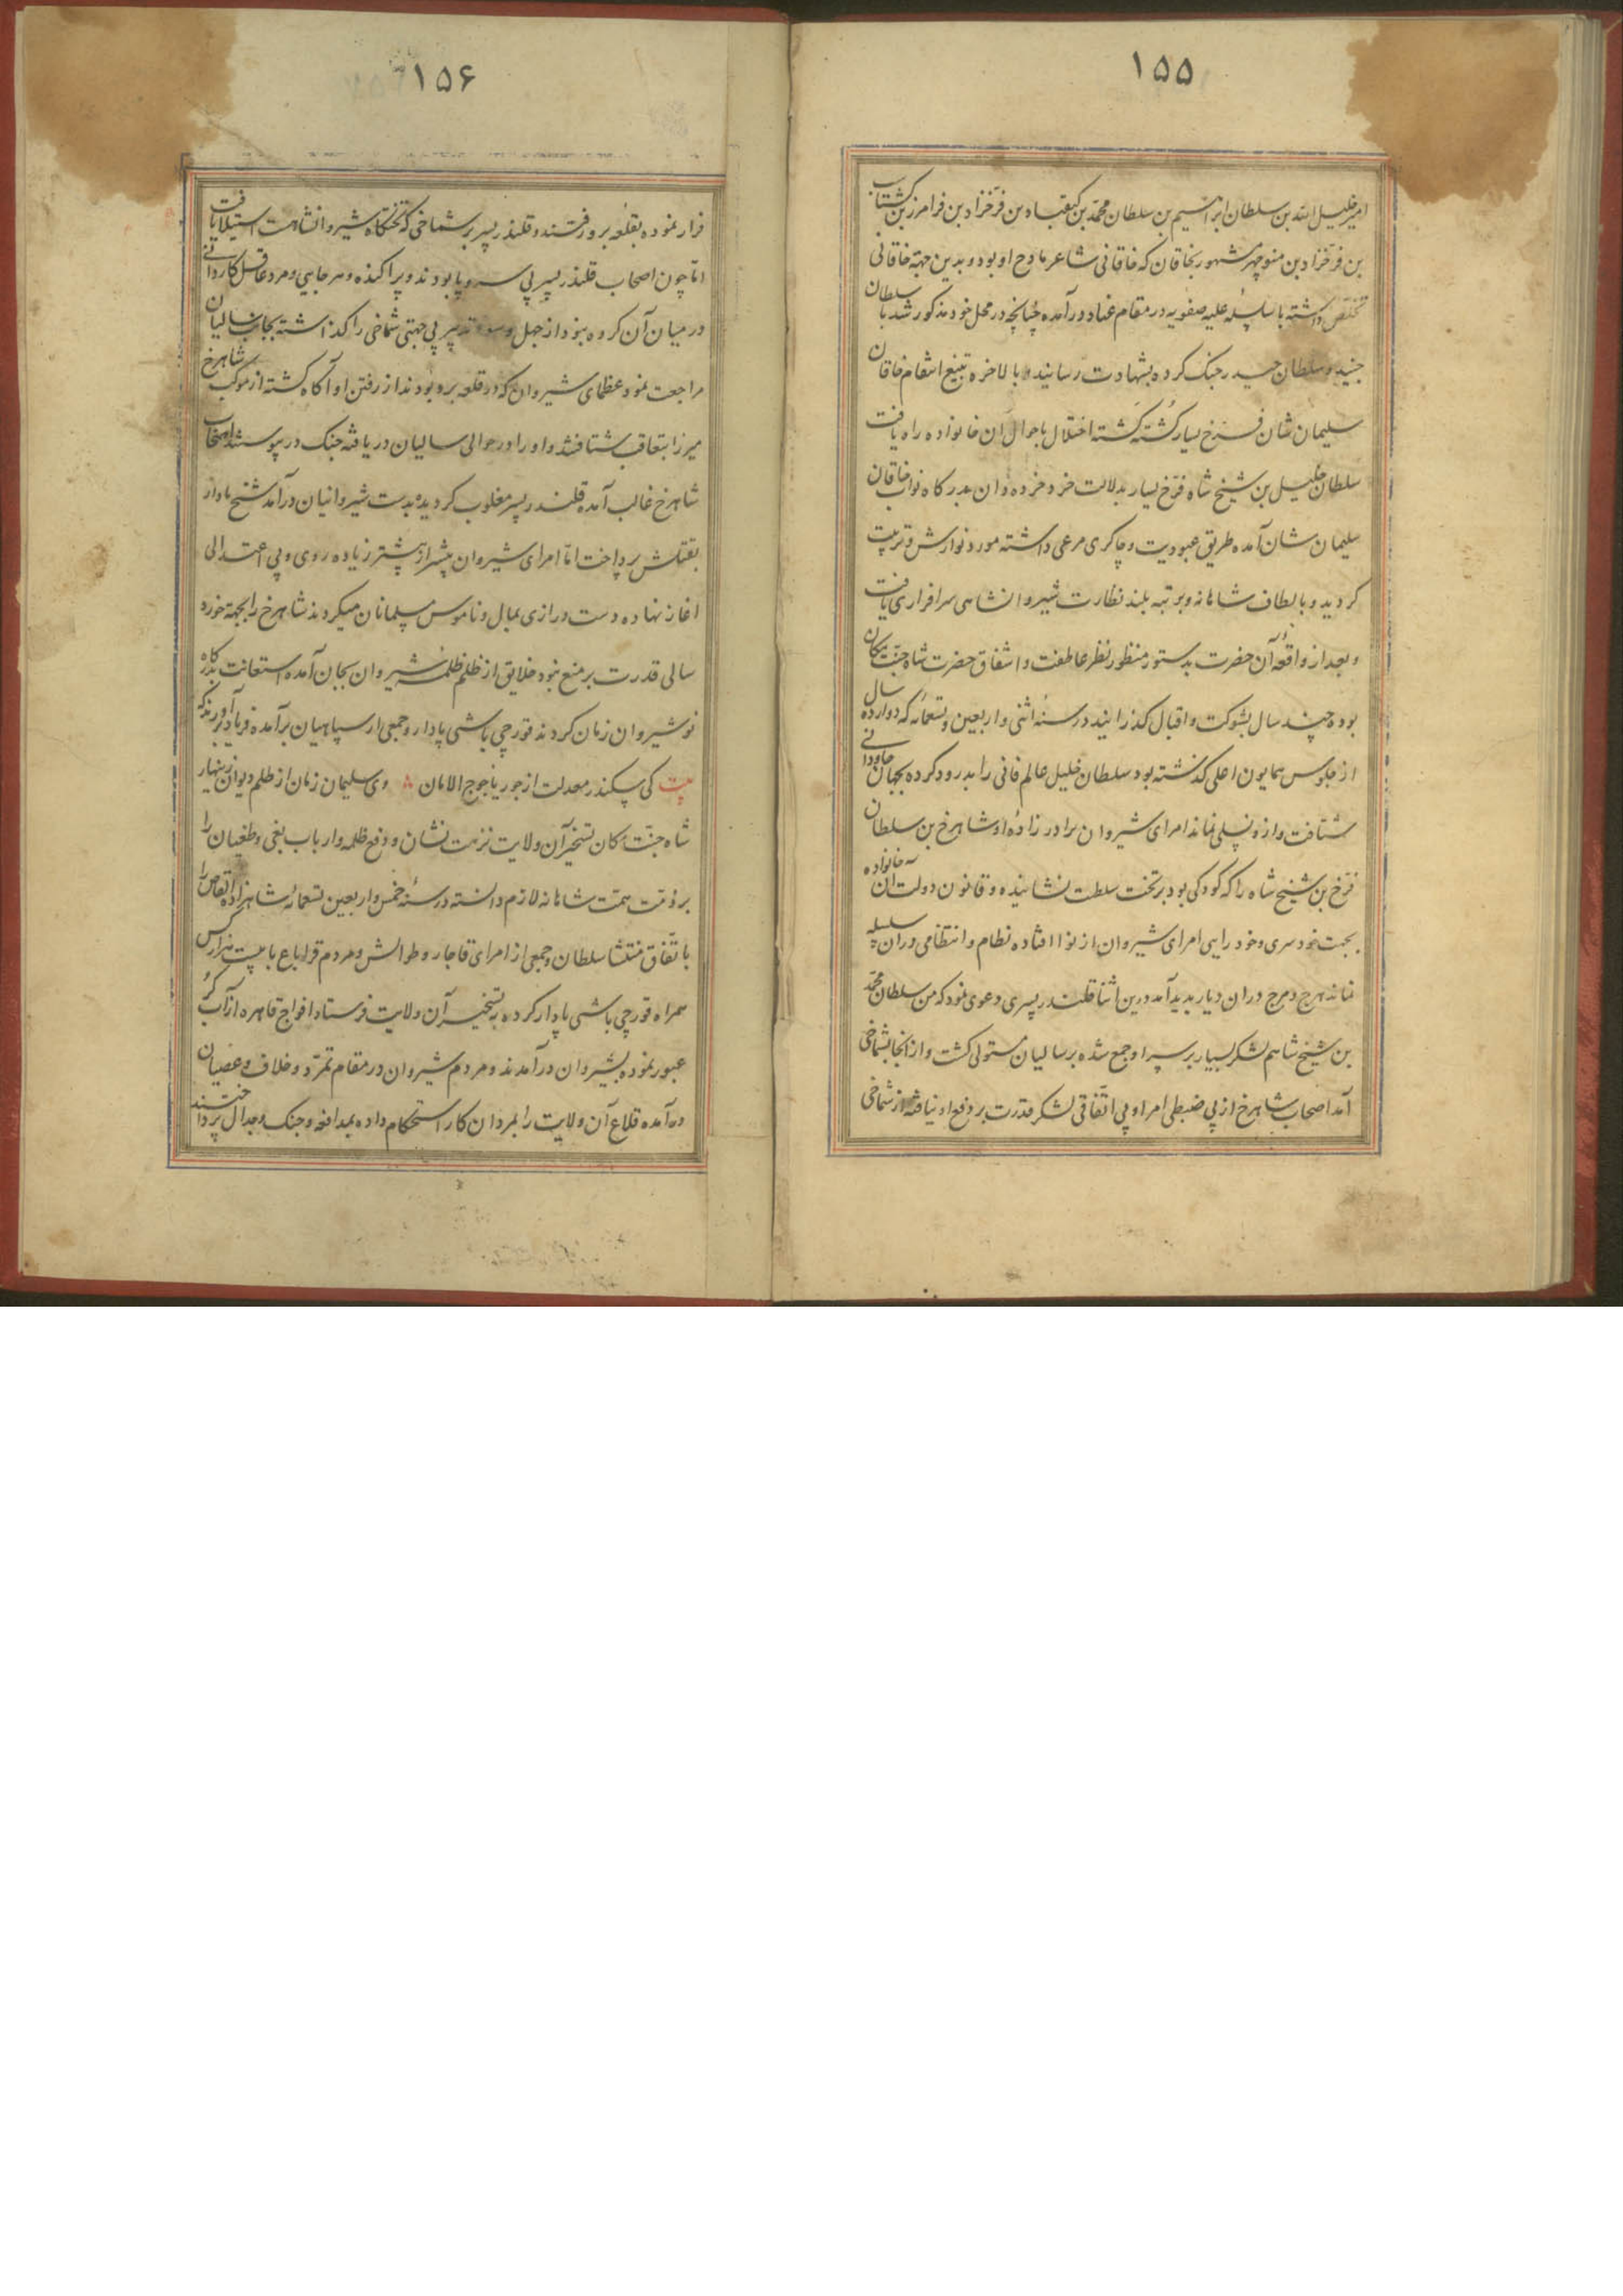 ۱۵۵
امیر خلیل الله بن سلطان ابراهیم بن سلطان محمد بن کیقباد بن فرخزاد بن فرامرز بن کشتاسب
بن فرخزاد بن منوچهر مشهور بخاقان که خاقانی شاعر مادح او بود و بدین جهة خاقانی
تخلص داشته با سلسله علیه صفویه در مقام عناد در آمده چنانچه در محل خود مذکور شد با سلطان
جنید و سلطان حیدر جنک کرده بشهادت رسانیدند و بالاخره بتیغ انتقام خاقان
سلیمان شان فرخ یسار کشته کشته اختلال باحوال آن خانواده راه یافت
سلطان خلیل بن شیخ شاه فرخ یسار بدلالت خرد خرده دان بدرکاه نواب خاقان
سلیمان شان آمده طریق عبودیت و چاکری مرعی داشته مورد نوازش و تربیت
کردید و بالطاف شاهانه و برتبه بلند نظارت شیروانشاهی سرافرازی یافت
و بعد از واقعه آن حضرت بدستور منظور نظر عاطفت و اشفاق حضرت شاه جنت مکان
بوده چند سال بشوکت و اقبال کذرانید در سنه اثنی و اربعین و تسعمائه که دوازده سال
از جلوس همایون اعلی کذشته بود سلطان خلیل عالم فانی را بدرود کرده بجهان جاودانی
شتافت و ازو نسلی نماند امرای شیروان برادر زاده او شاهرخ بن سلطان
فرخ بن شیخ شاه را که کودکی بود بر تخت سلطنت نشانیده و قانون دولت آن خانواده
بجهت خود سری و خود رایی امرای شیروان از نوا افتاده نظام و انتظامی در آن سلسله
نماند هرج و مرج در ان دیار بدید آمد درین اثنا قلندر پسری دعوی نمود که من سلطان محمد
بن شیخ شاهم لشکر بسیار بر سر او جمع شده بر سالیان مستولی کشت و از آنجا بشماخی
آمد اصحاب شاهرخ از بی ضبطی امرا و بی اتفاقی لشکر قدرت بر دفع او نیافته از شماخی
۱۵۶
فرار نموده بقلعه بروزفتند و قلندر پسر بر شماخی که تختکاه شیروانشاهست استیلا یافت
اما چون اصحاب قلندر پسر بی سر و پا بودند و پراکنده و هر جایی و مرد عاقل کاردانی
در میان آن کروه نبود از جهل و سوء تدبیر بی جهتی شماخی را کذاشته بجانب سالیان
مراجعت نمود عظمای شیروان که در قلعه برو بودند از رفتن او آکاه کشته از موکب شاهرخ
میرزا بتعاقب شتافتند و او را در حوالی سالیان دریافته جنک در پیوستند اصحاب
شاهرخ غالب آمده قلندر پسر مغلوب کردیده بدست شیروانیان درآمد شیخ پادار
بقتلش پرداخت اما امرای شیروان پیشتر از پیشتر زیاده روی و بی اعتدالی
اغاز نهاده دست درازی بمال و ناموس مسلمانان میکردند شاهرخ را بجهة خورد
سالی قدرت بر منع نبود خلایق از ظلم ظلمه شیروان بجان آمده استعانت بدرکاه
نوشیروان زمان کردند قورچی باشی پادار و جمعی از سپاهیان برآمده فریاد بر آوردند که
بیت کی سکندر معدلت از جور یاجوج الامان وی سلیمان زمان از ظلم دیوان زینهار
شاه جنت مکان تسخیر آن ولایت نزهت نشان و دفع ظلمه و ارباب بغی و طغیان را
بر ذمت همت شاهانه لازم دانسته در سنه خمس و اربعین تسعمائه شاهزاده القاص را
باتفاق منتشا سلطان و جمعی از امرای قاجار و طوالش و مردم قراباغ با بیست هزار کس
همراه قورچی باشی پادار کرده به تسخیر آن ولایت فرستاد افواج قاهره از آب کر
عبور نموده بشیروان درآمدند و مردم شیروان در مقام تمرد و خلاف و عصیان
در آمده قلاع آن ولایت را بمردان کار استحکام داده بمدافعه و جنک و جدال پرداختند